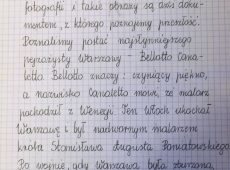 fotografii i takie obrazy są dziś doku-
mentem, z którego poznajemy przeszłość.
Poznaliśmy postać najsłynniejszego
pejzażysty Warszawy - Bellotto Cana-
letto. Bellotto znaczy: czyniący piękno,
a nazwisko Canaletto mówi, że malarz
pochodził z Wenecji. Ten Włoch ukochał
Warszawę i był nadwornym malarzem
króla Stanisława Augusta Poniatowskiego.
Po wojnie, gdy Warszawa była zburzona,